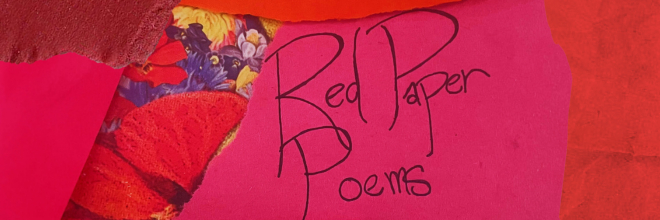 Red Paper
Poems